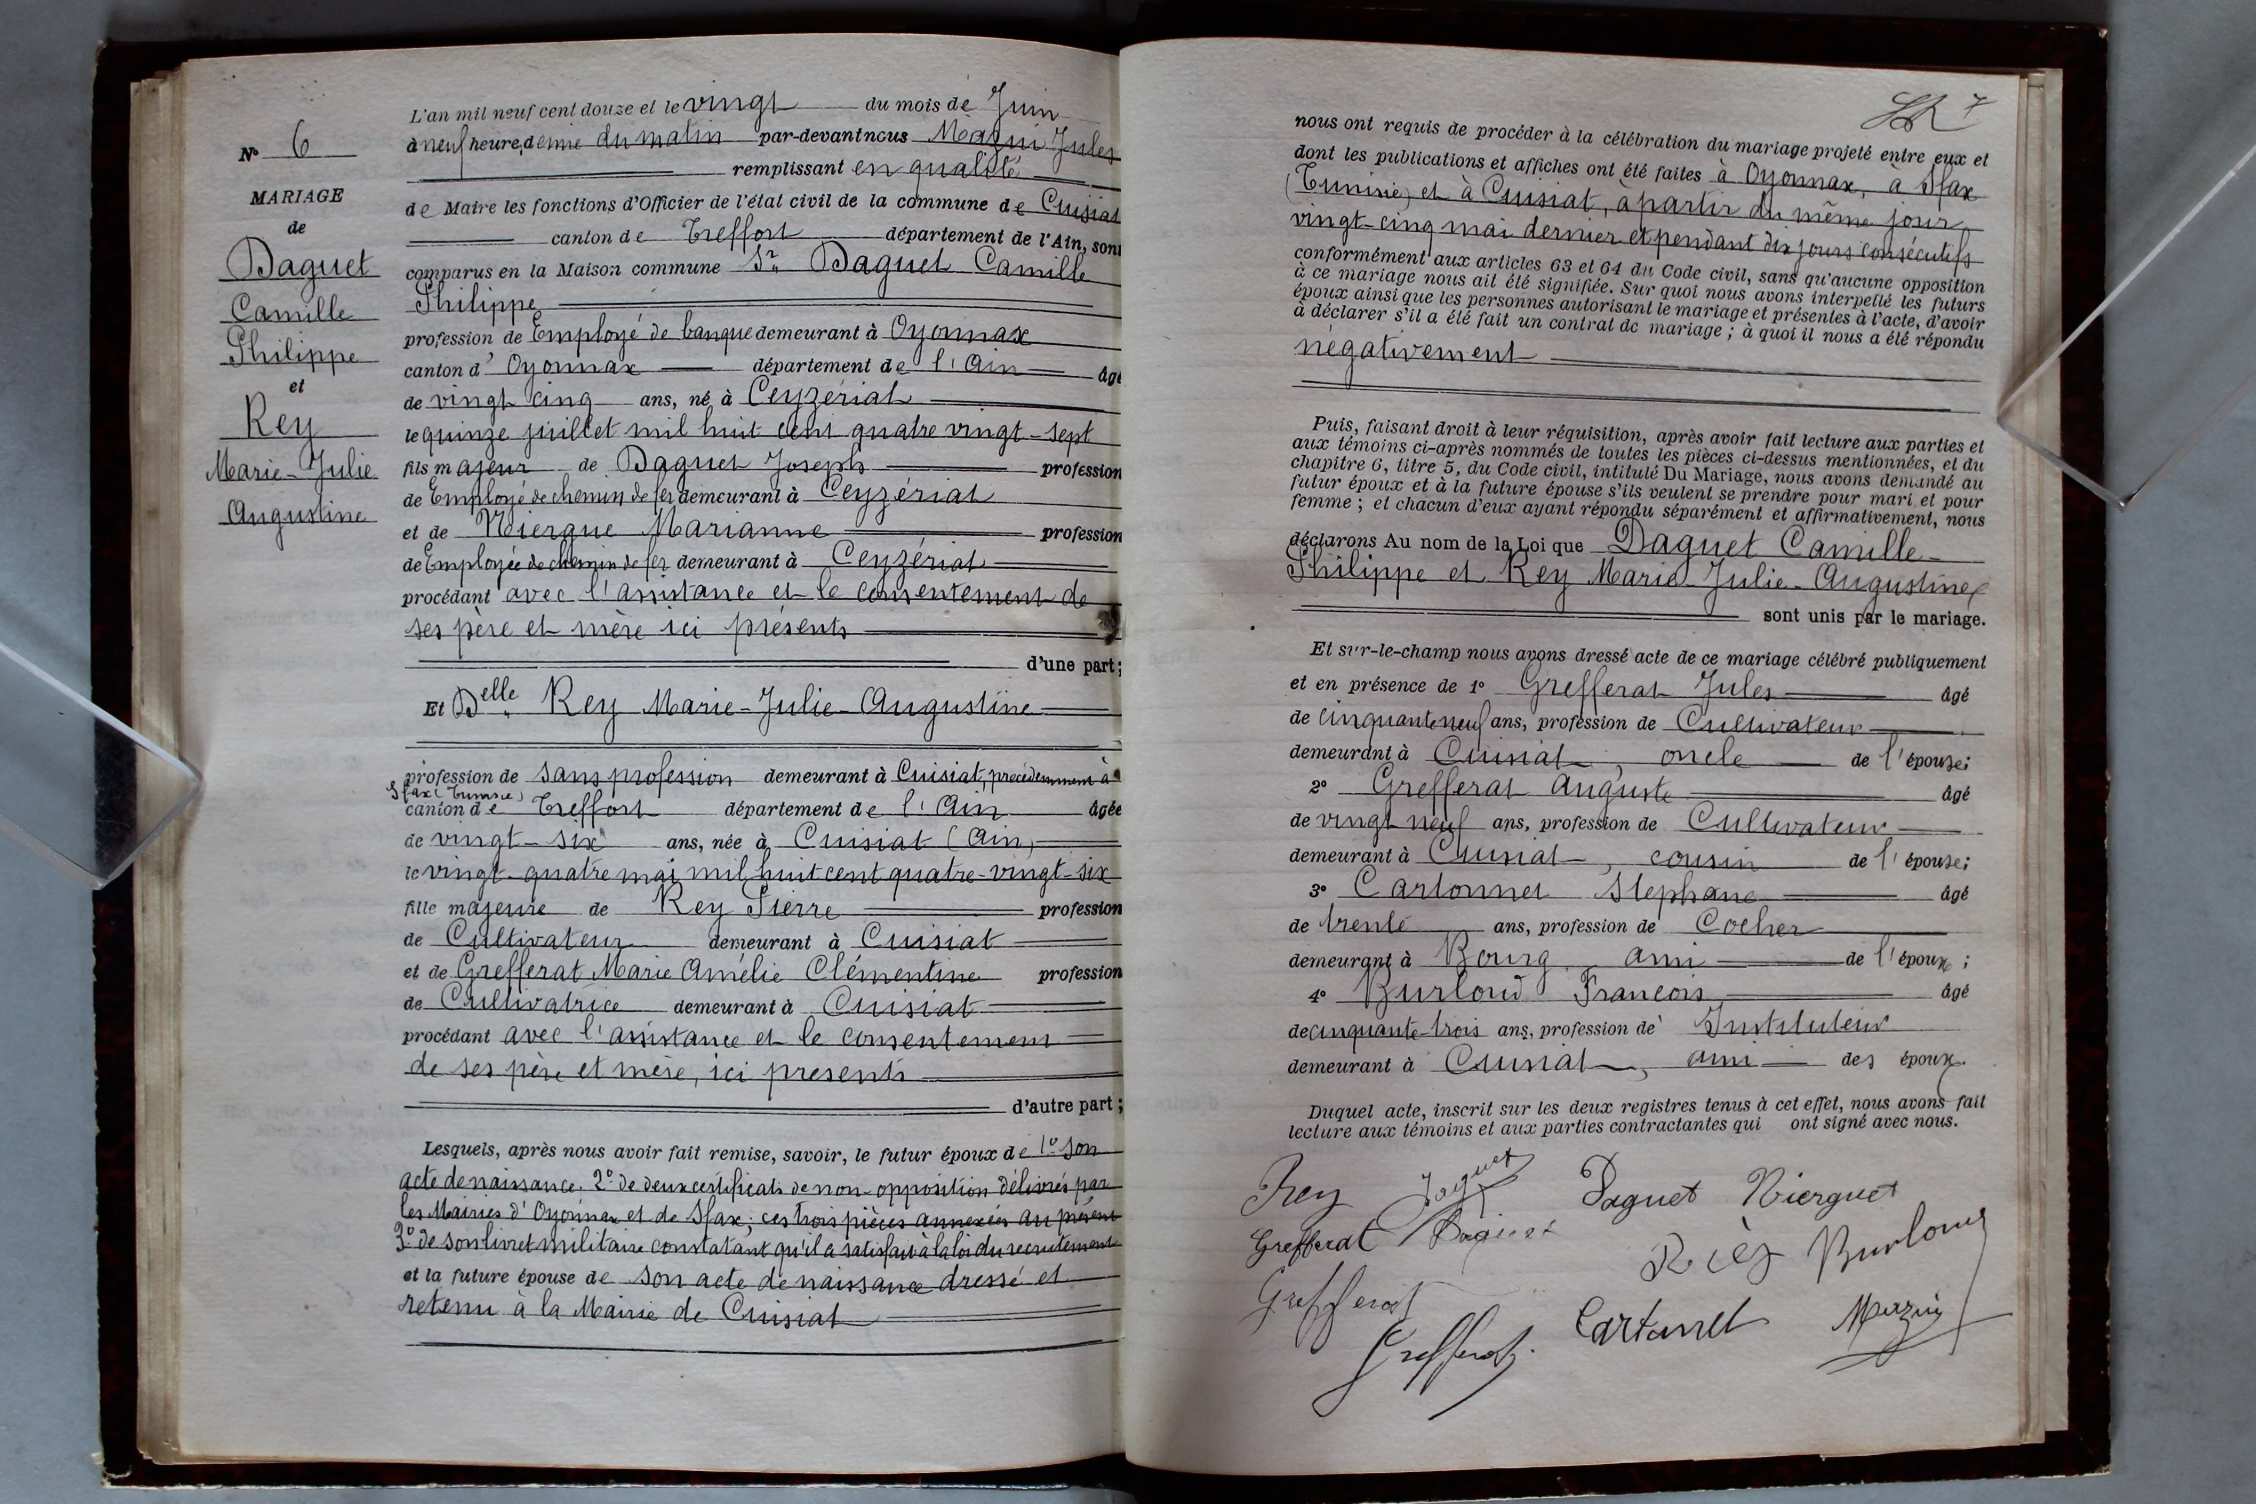 N° 6
MARIAGE
de
Daguet
Camille
Philippe
et
Rey
Marie-Julie
Augustine
L'an mil neuf cent douze et le vingt du mois de Juin
à neuf heure, demie du matin par-devant nous Mazuir Jules
remplissant en qualité
de Maire les fonctions d'Officier de l'état civil de la commune de Cuisiat
canton de Treffort département de l'Ain, sont
comparus en la Maison commune Sr Daguet Camille
Philippe
profession de Employé de banque demeurant à Oyonnax
canton d' Oyonnax département de l'Ain âgé
de vingt cinq ans, né à Ceyzériat
le quinze juillet mil huit cent quatre vingt-sept
fils majeur de Daguet Joseph profession
de Employé de chemin de fer demeurant à Ceyzériat
et de Niergue Marianne profession
de Employée de chemin de fer demeurant à Ceyzériat
procédant avec l'assistance et le consentement de
ses père et mère ici présents
d'une part;
Et Delle Rey Marie-Julie-Augustine
profession de sans profession demeurant à Cuisiat, précédemment à
Sfax (Tunisie)
canton de Treffort département de l'Ain âgée
de vingt-six ans, née à Cuisiat (Ain)
le vingt-quatre mai mil huit cent quatre-vingt-six
fille majeure de Rey Pierre profession
de Cultivateur demeurant à Cuisiat
et de Grefferat Marie Amélie Clémentine profession
de Cultivatrice demeurant à Cuisiat
procédant avec l'assistance et le consentement
de ses père et mère, ici présents
d'autre part;
Lesquels, après nous avoir fait remise, savoir, le futur époux de 1° son
acte de naissance. 2° de deux certificats de non-opposition délivrés par
les Mairies d'Oyonnax et de Sfax; ces trois pièces annexées au présent
3° de son livret militaire constatant qu'il a satisfait à la loi du recrutement
et la future épouse de son acte de naissance dressé et
retenu à la Mairie de Cuisiat
7
nous ont requis de procéder à la célébration du mariage projeté entre eux et
dont les publications et affiches ont été faites à Oyonnax, à Sfax
(Tunisie) et à Cuisiat, à partir du même jour
vingt-cinq mai dernier et pendant dix jours consécutifs
conformément aux articles 63 et 64 du Code civil, sans qu'aucune opposition
à ce mariage nous ait été signifiée. Sur quoi nous avons interpellé les futurs
époux ainsi que les personnes autorisant le mariage et présentes à l'acte, d'avoir
à déclarer s'il a été fait un contrat de mariage; à quoi il nous a été répondu
négativement
Puis, faisant droit à leur réquisition, après avoir fait lecture aux parties et
aux témoins ci-après nommés de toutes les pièces ci-dessus mentionnées, et du
chapitre 6, titre 5, du Code civil, intitulé Du Mariage, nous avons demandé au
futur époux et à la future épouse s'ils veulent se prendre pour mari et pour
femme; et chacun d'eux ayant répondu séparément et affirmativement, nous
déclarons Au nom de la Loi que Daguet Camille-
Philippe et Rey Marie-Julie-Augustine
sont unis par le mariage.
Et sur-le-champ nous avons dressé acte de ce mariage célébré publiquement
et en présence de 1° Grefferat Jules âgé
de cinquante neuf ans, profession de Cultivateur
demeurant à Cuisiat, oncle de l'épouse;
2° Grefferat Auguste âgé
de vingt neuf ans, profession de Cultivateur
demeurant à Cuisiat, cousin de l'épouse;
3° Cartonnet Stephane âgé
de trente ans, profession de Cocher
demeurant à Bourg ami de l'époux;
4° Burloud François âgé
de cinquante-trois ans, profession de Instituteur
demeurant à Cuisiat, ami des époux.
Duquel acte, inscrit sur les deux registres tenus à cet effet, nous avons fait
lecture aux témoins et aux parties contractantes qui ont signé avec nous.
Rey Daguet Daguet Nierguet
Grefferat Daguet Burloud
Grefferat
Grefferat Cartonnet Mazuir